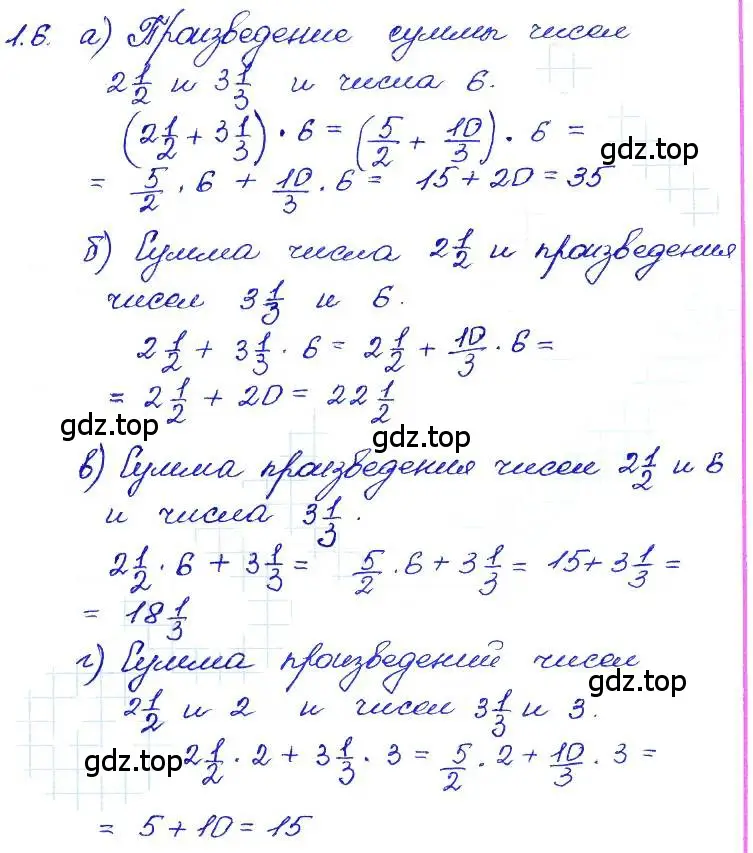 1.6. а) Произведение суммы чисел
2 1/2 и 3 1/3 и числа 6.
(2 1/2 + 3 1/3) · 6 = (5/2 + 10/3) · 6 =
gdz.top
= 5/2 · 6 + 10/3 · 6 = 15 + 20 = 35
б) Сумма числа 2 1/2 и произведения
чисел 3 1/3 и 6.
2 1/2 + 3 1/3 · 6 = 2 1/2 + 10/3 · 6 =
= 2 1/2 + 20 = 22 1/2
gdz.top
gdz.top
в) Сумма произведения чисел 2 1/2 и 6
и числа 3 1/3.
2 1/2 · 6 + 3 1/3 = 5/2 · 6 + 3 1/3 = 15 + 3 1/3 =
= 18 1/3
г) Сумма произведений чисел
gdz.top
2 1/2 и 2 и чисел 3 1/3 и 3.
gdz.top
2 1/2 · 2 + 3 1/3 · 3 = 5/2 · 2 + 10/3 · 3 =
= 5 + 10 = 15